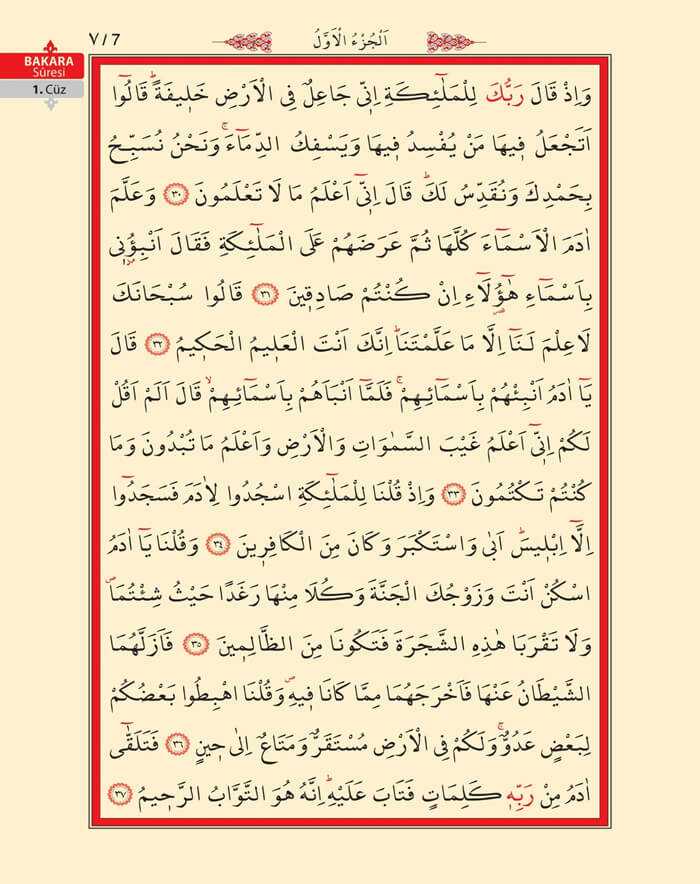 ٧/7
اَلْجُزْءُ الْاَوَّلُ
BAKARA
Sûresi
1. Cüz
وَاِذْ قَالَ رَبُّكَ لِلْمَلٰٓئِكَةِ اِنّ۪ي جَاعِلٌ فِي الْاَرْضِ خَل۪يفَةًۜ قَالُٓوا
اَتَجْعَلُ ف۪يهَا مَنْ يُفْسِدُ ف۪يهَا وَيَسْفِكُ الدِّمَٓاءَۚ وَنَحْنُ نُسَبِّحُ
بِحَمْدِكَ وَنُقَدِّسُ لَكَۜ قَالَ اِنّ۪ٓي اَعْلَمُ مَا لَا تَعْلَمُونَ ﴿٣٠﴾ وَعَلَّمَ
اٰدَمَ الْاَسْمَٓاءَ كُلَّهَا ثُمَّ عَرَضَهُمْ عَلَى الْمَلٰٓئِكَةِ فَقَالَ اَنْبِؤُ۫ن۪ي
بِاَسْمَٓاءِ هٰٓؤُ۬لَٓاءِ اِنْ كُنْتُمْ صَادِق۪ينَ ﴿٣١﴾ قَالُوا سُبْحَانَكَ
لَا عِلْمَ لَنَٓا اِلَّا مَا عَلَّمْتَنَاۜ اِنَّكَ اَنْتَ الْعَل۪يمُ الْحَك۪يمُ ﴿٣٢﴾ قَالَ
يَٓا اٰدَمُ اَنْبِئْهُمْ بِاَسْمَٓائِهِمْۚ فَلَمَّٓا اَنْبَاَهُمْ بِاَسْمَٓائِهِمْۙ قَالَ اَلَمْ اَقُلْ
لَكُمْ اِنّ۪ٓي اَعْلَمُ غَيْبَ السَّمٰوَاتِ وَالْاَرْضِ وَاَعْلَمُ مَا تُبْدُونَ وَمَا
كُنْتُمْ تَكْتُمُونَ ﴿٣٣﴾ وَاِذْ قُلْنَا لِلْمَلٰٓئِكَةِ اسْجُدُوا لِاٰدَمَ فَسَجَدُٓوا
اِلَّٓا اِبْل۪يسَۜ اَبٰى وَاسْتَكْبَرَ وَكَانَ مِنَ الْكَافِر۪ينَ ﴿٣٤﴾ وَقُلْنَا يَٓا اٰدَمُ
اسْكُنْ اَنْتَ وَزَوْجُكَ الْجَنَّةَ وَكُلَا مِنْهَا رَغَدًا حَيْثُ شِئْتُمَاۖ
وَلَا تَقْرَبَا هٰذِهِ الشَّجَرَةَ فَتَكُونَا مِنَ الظَّالِم۪ينَ ﴿٣٥﴾ فَاَزَلَّهُمَا
الشَّيْطَانُ عَنْهَا فَاَخْرَجَهُمَا مِمَّا كَانَا ف۪يهِۖ وَقُلْنَا اهْبِطُوا بَعْضُكُمْ
لِبَعْضٍ عَدُوٌّۚ وَلَكُمْ فِي الْاَرْضِ مُسْتَقَرٌّ وَمَتَاعٌ اِلٰى ح۪ينٍ ﴿٣٦﴾ فَتَلَقّٰٓى
اٰدَمُ مِنْ رَبِّه۪ كَلِمَاتٍ فَتَابَ عَلَيْهِۜ اِنَّهُ هُوَ التَّوَّابُ الرَّح۪يمُ ﴿٣٧﴾